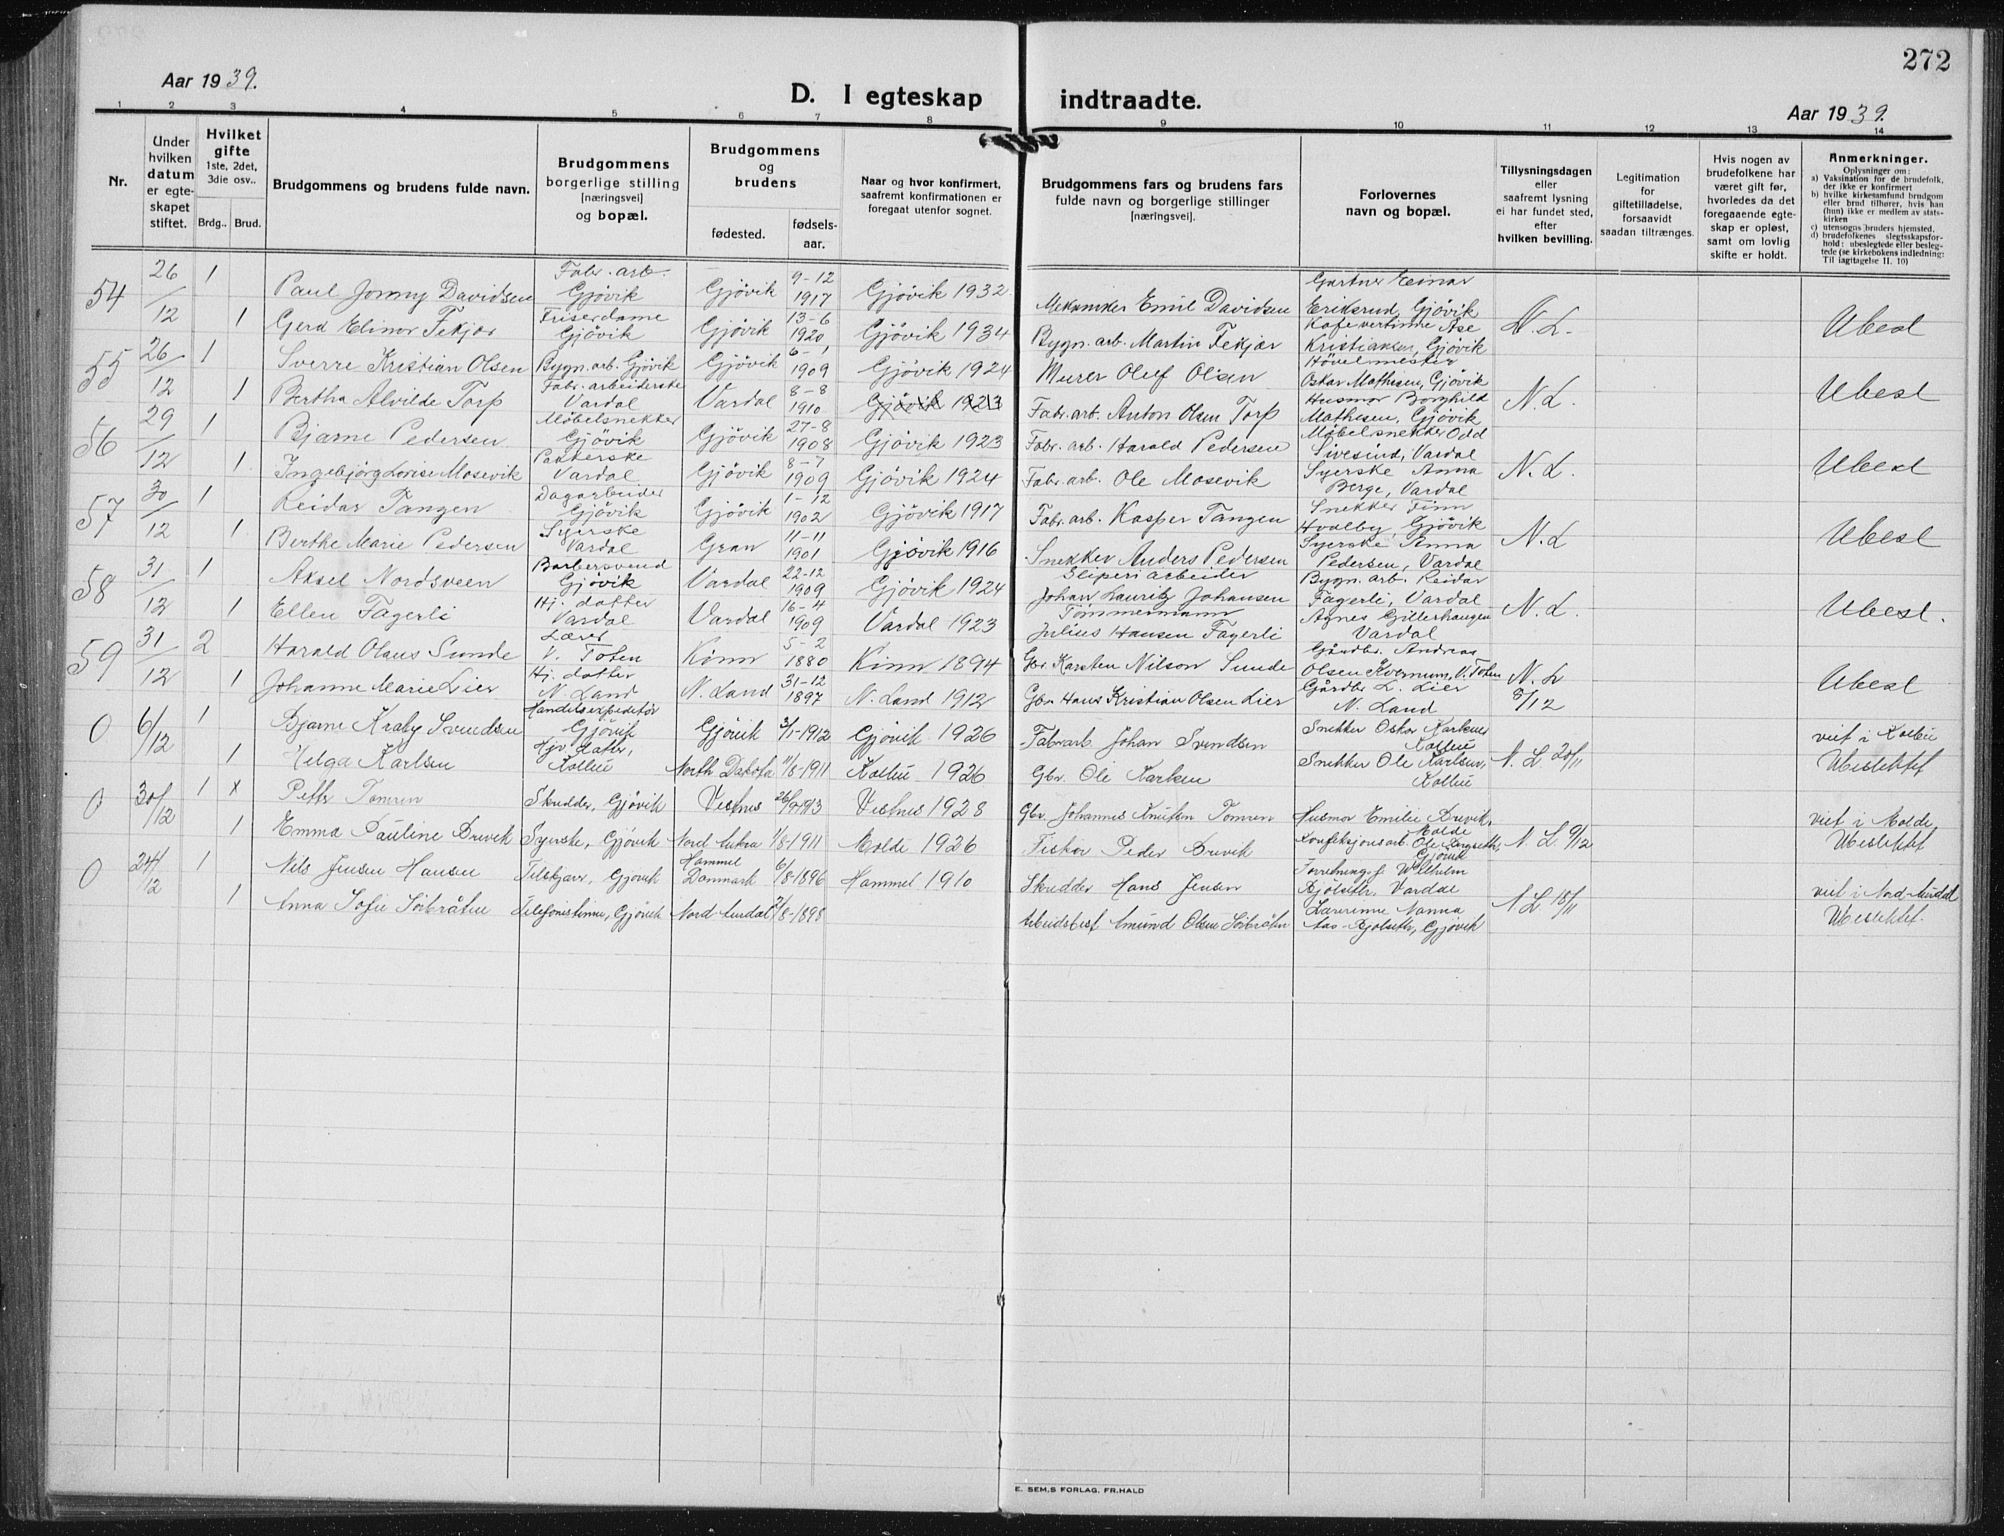 272
Aar 1939.
D. I egteskap indtraadte.
Aar 1939.
1 2 3 4 5 6 7 8 9 10 11 12 13 14
Nr.
Under hvilken datum er egteskapet stiftet.
Hvilket gifte 1ste, 2det, 3die osv..
Brdg.. Brud.
Brudgommens og brudens fulde navn.
Brudgommens borgerlige stilling [næringsvei] og bopæl.
Brudgommens og brudens
fødested. fødselsaar.
Naar og hvor konfirmert, saafremt konfirmationen er foregaat utenfor sognet.
Brudgommens fars og brudens fars fulde navn og borgerlige stillinger [næringsvei].
Forlovernes navn og bopæl.
Tillysningsdagen eller saafremt lysning ei har fundet sted, efter hvilken bevilling.
Legitimation for giftetilladelse, forsaavidt saadan tiltrænges.
Hvis nogen av brudefolkene har været gift før, hvorledes da det foregaaende egteskap er opløst, samt om lovlig skifte er holdt.
Anmerkninger. Oplysninger om: a) Vaksination for de brudefolk, der ikke er konfirmert b) hvilke kirkesamfund brudgom eller brud tilhører, hvis han (hun) ikke er medlem av statskirken c) utensogns bruders hjemsted. d) brudefolkenes slegtsskapsforhold: ubeslegtede eller beslegtede (se kirkebokens indledning: Til iagttagelse II, 10)
54 26/12 1 Paul Jonny Davidsen Fabr. arb. Gjövik Gjövik 9-12 1917 Gjövik 1932 Mekaniker Emil Davidsen Gartner Einar Eriksrud, Gjövik N. L. Ubesl
1 Gerd Elinor Fekjær Friserdame Gjövik Gjövik 13-6 1920 Gjövik 1934 Bygn. arb. Martin Fekjær Kafevertinne Åse Kristiansen, Gjövik
55 26/12 1 Sverre Kristian Olsen Bygn. arb. Gjövik Gjövik 6-1 1909 Gjövik 1924 Murer Oluf Olsen Hövelmester Oskar Mathisen, Gjövik N. L. Ubesl
1 Bertha Alvilde Torp Fabr. arbeiderske Vardal Vardal 8-8 1910 Gjövik 1923 Fabr. arb. Anton Olsen Torp Husmor Borghild Mathisen, Gjövik
56 29/12 1 Bjarne Pedersen Möbelsnekker Gjövik Gjövik 27-8 1908 Gjövik 1923 Fabr. arb. Harald Pedersen Möbelsnekker Odd Sivesind, Vardal N. L. Ubesl
1 Ingebjörg Lovise Mosevik Pakkerske Vardal Gjövik 8-7 1909 Gjövik 1924 Fabr. arb. Ole Mosevik Syerske Anna Berge, Vardal
57 30/12 1 Reidar Tangen Dagarbeider Gjövik Gjövik 1-12 1902 Gjövik 1917 Fabr. arb. Kasper Tangen Snekker Finn Hvalby, Gjövik N. L Ubesl
1 Berthe Marie Pedersen Syerske Vardal Gran 11-11 1901 Gjövik 1916 Snekker Anders Pedersen Syerske Anna Pedersen, Vardal
58 31/12 1 Aksel Nordsveen Barbersvend Gjövik Vardal 22-12 1909 Gjövik 1924 Sliperiarbeider Johan Lauritz Johansen Bygn. arb. Reidar Fagerli, Vardal N. L. Ubesl.
1 Ellen Fagerli Hj. datter Vardal Vardal 16-4 1909 Vardal 1923 Tömmermann Julius Hansen Fagerli Agnes Gillerhaugen Vardal
59 31/12 2 Harald Olaus Sunde Lærer V. Toten Kinn 5-2 1880 Kinn 1894 Gbr. Karsten Nilson Sunde Gårdbr. Andreas Olsen Kvernum, V. Toten N. L 8/12 Ubesl
1 Johanne Marie Lier Hj. datter N. Land N. Land 31-12 1897 N. Land 1912 Gbr. Hans Kristian Olsen Lier Gårdbr L. Lier N. Land
0 6/12 1 Bjarne Kraby Svendsen Handelsexpeditör Gjövik Gjövik 3/1-1912 Gjövik 1926 Fabr.arb. Johan Svendsen Snekker Oskar Karlsen Kolbu N. L. 20/11 viet i Kolbu Ubeslektet
1 Helga Karlsen Hjv. datter, Kolbu North Dakota 11/8-1911 Kolbu 1926 Gbr. Ole Karlsen Snekker Ole Karlsen, Kolbu
0 30/12 1 x Petter Tomren Skredder, Gjövik Vestnes 26/9 1913 Vestnes 1928 Gbr. Johannes Knutsen Tomren Husmor Emilie Drevik, Molde N L 9/12 viet i Molde Ubeslektet
1 Emma Pauline Drevik Syerske, Gjövik Nord Aukra 1/8-1911 Molde 1926 Fisker Peder Drevik Konfeksjonsarb. Ole Bergseth, Gjövik
0 24/12 1 Nils Jensen Hansen Feldskjær, Gjövik Hammel Danmark 6/8-1896 Hammel 1910 Skredder Hans Jensen Forretningsf. Wilhelm Bjölseth, Vardal N L 18/11 viet i Nord-Aurdal Ubeslektet.
1 Anna Sofie Sörbråten Telefonistinne, Gjövik Nord-Aurdal 7/8-1898 Arbeidsbest Amund Olsen Sörbråten Lærerinne Nanna Aas-Bjölseth, Gjövik
E. SEM.S FORLAG, FR.HALD